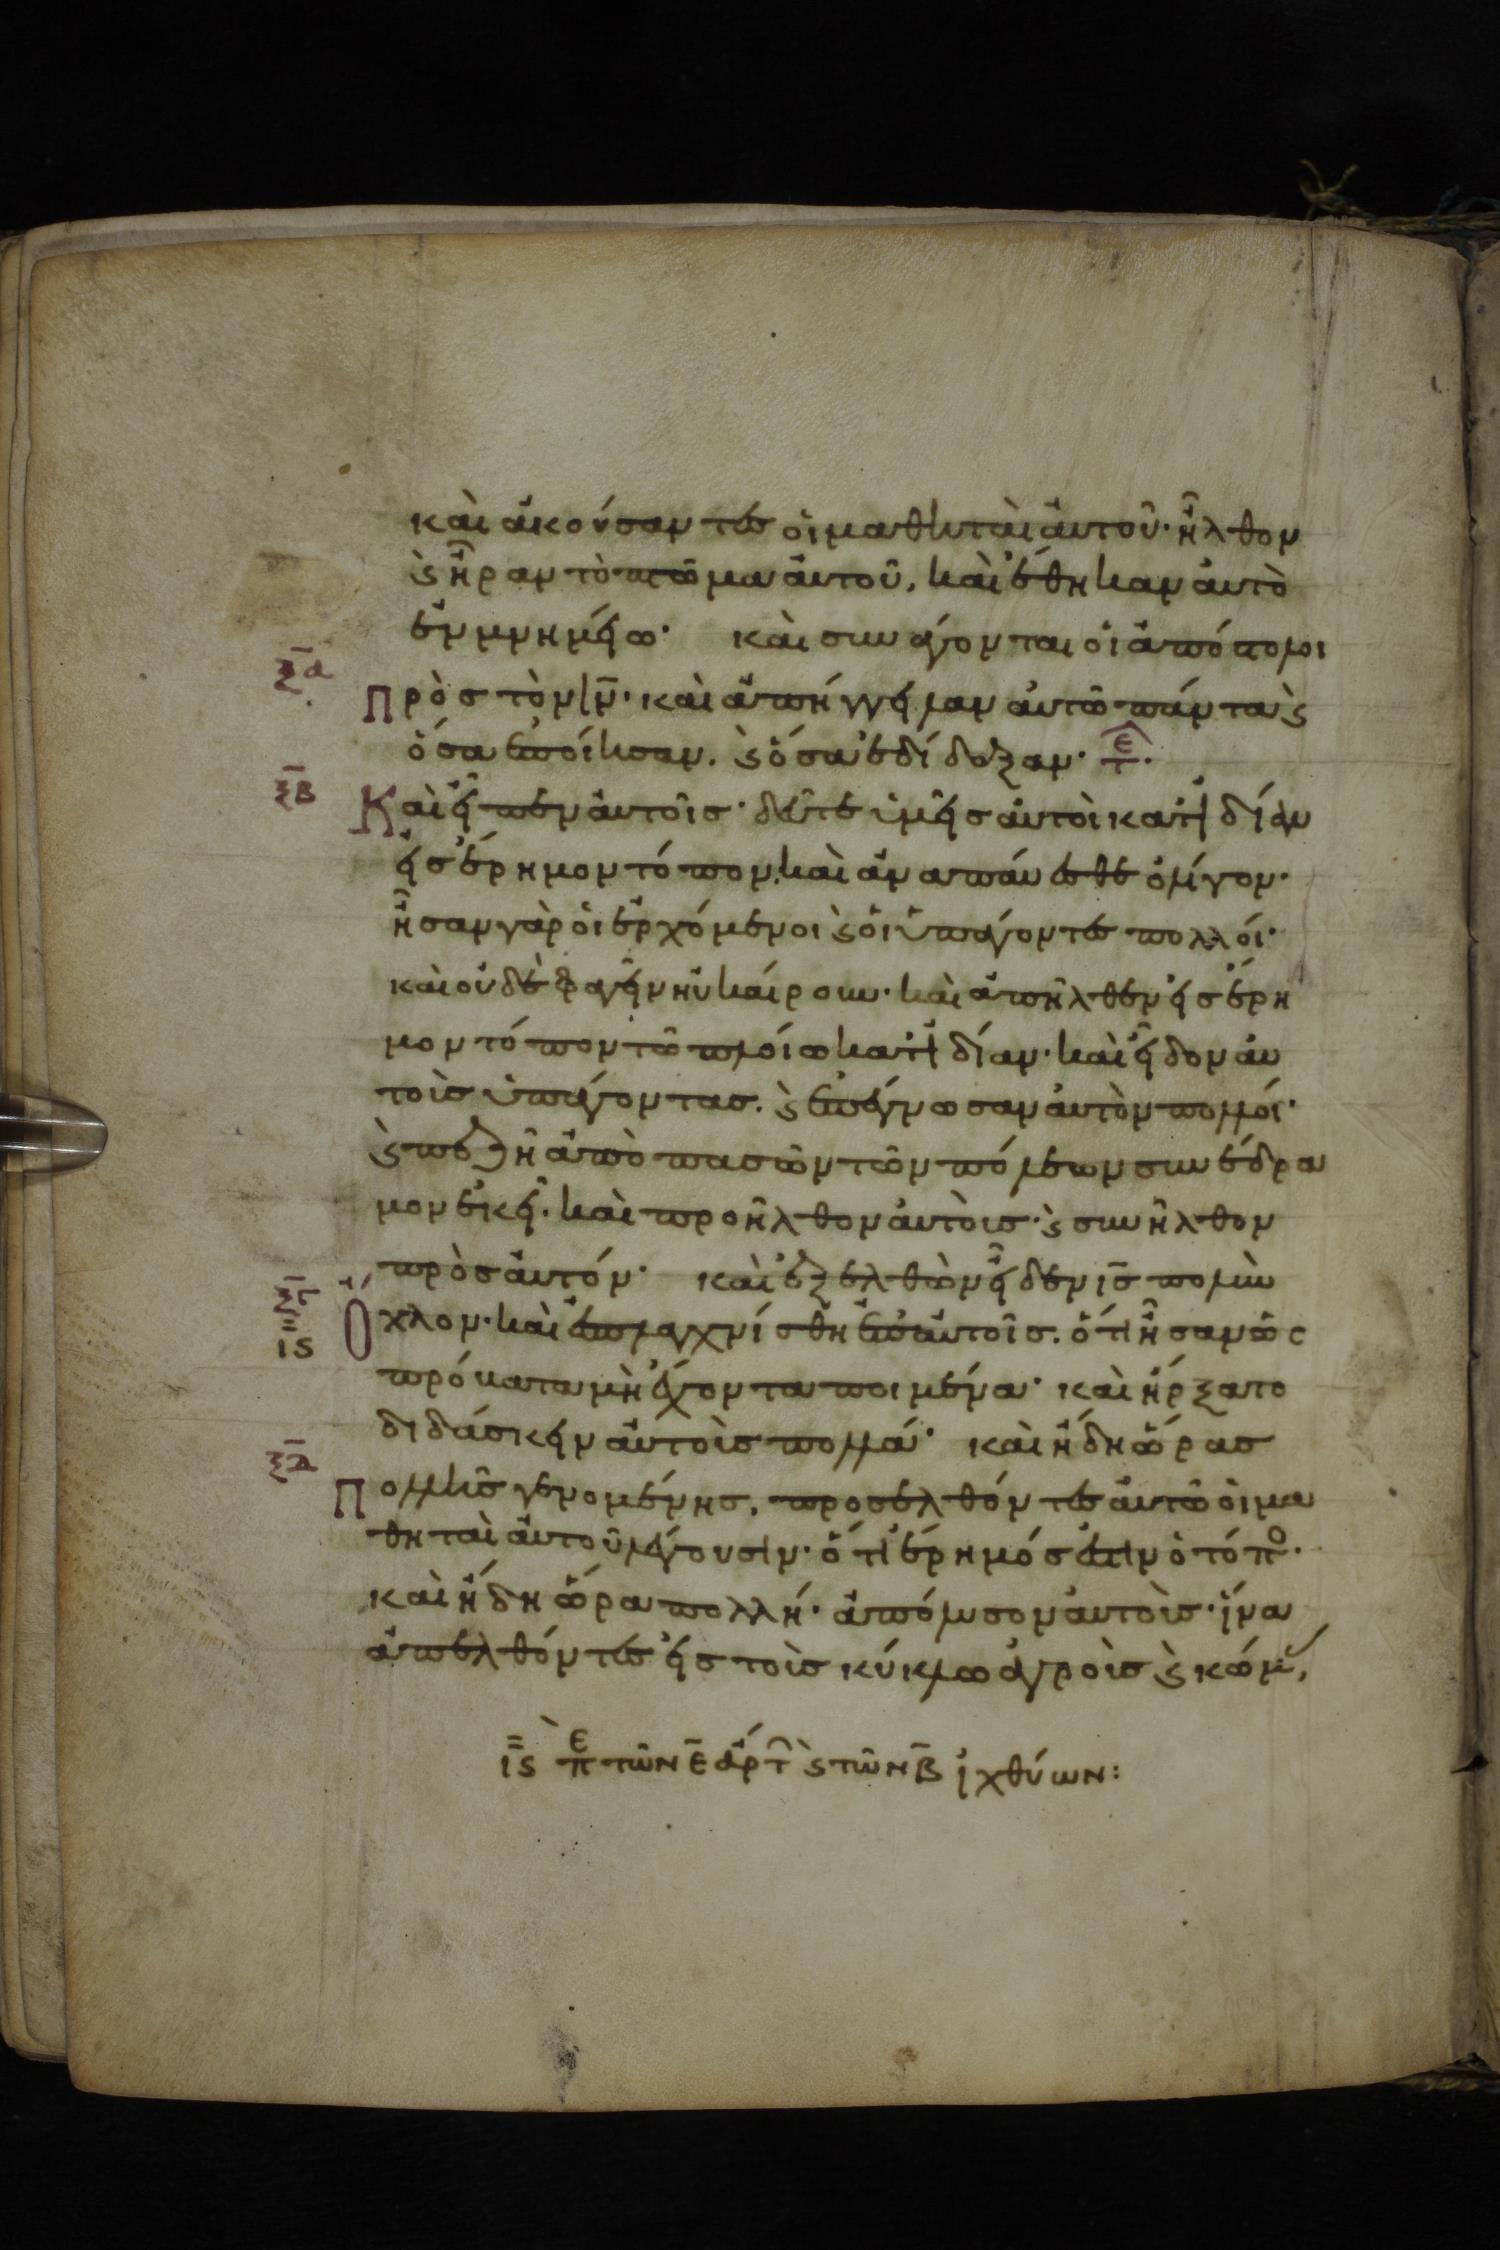 καὶ ἀκούσαντες οἱ μαθηταὶ αὐτοῦ· ἦλθον
ϛ ἦραν τὸ πτῶμα αὐτοῦ, καὶ ἔθηκαν αὐτὸ
ἐν μνημείω· καὶ συνάγονται οἱ ἀπόστολοι
ξα
Πρὸς τὸν ιν̅· καὶ ἀπήγγειλαν αὐτῶ πάντα ϛ
ὅσα ἐποίησαν. ϛ ὅσα ἐδίδαξαν· τε·
ξβ
Καὶ εἶπεν αὐτοῖς· δεῦτε ὑμεῖς αὐτοὶ κατ' ἰδίαν
εἰς ἔρημον τόπον, καὶ ἀναπαύεσθε ὀλίγον·
ἦσαν γὰρ οἱ ἐρχόμενοι ϛ οἱ ὑπάγοντες πολλοί·
καὶ οὐδὲ φαγεῖν ηὐκαίρουν· καὶ ἀπῆλθεν εἰς ἔρη
μον τόπον τῶ πλοίω κατ' ἰδίαν· καὶ εἶδον αὐ
τοὺς ὑπάγοντας. ϛ ἐπέγνωσαν αὐτὸν πολλοί·
ϛ πεζῆ ἀπὸ πασῶν τῶν πόλεων συνέδρα
μον ἐκεῖ· καὶ προῆλθον αὐτοὺς· ϛ συνῆλθον
πρὸς αὐτόν· καὶ ἐξελθὼν εἶδεν ις̅ πολὺν
ξγ
ις
Ὄχλον· καὶ ἐσπλαγχνίσθη ἐπ' αὐτοῖς. ὅτι ἦσαν ὡς
πρόβατα μὴ ἔχοντα ποιμένα· καὶ ἤρξατο
διδάσκειν αὐτοὺς πολλά· καὶ ἤδη ὥρας
ξδ
Πολλῆς γενομένης, προσελθόντες αὐτῶ οἱ μα
θηταὶ αὐτοῦ λέγουσιν· ὅτι ἔρημός ἐστιν ὁ τόπο·
καὶ ἤδη ὥρα πολλή· ἀπόλυσον αὐτοὺς· ἵνα
ἀπελθόντες εἰς τοὺς κύκλω ἀγροὺς ϛ κώμ,
ις πε τῶν ε̅ ἄρτ ϛ τῶν β̅ ἰχθύων: